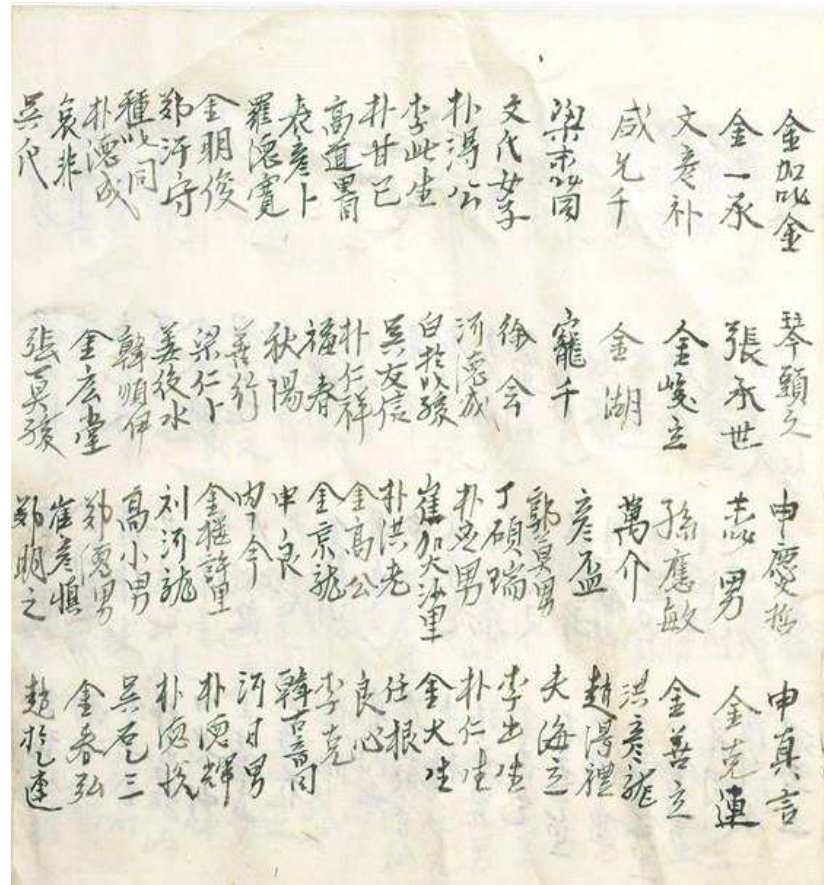 金加叱金
金一承
文彦補
咸允千
梁末叱同
文代女子
朴得公
李此生
朴甘已
高道里同
表彦卜
羅德寬
金明俊
鄭汗守
種叱同
朴德成
哀非
吳代
琴顯之
張承世
金峻立
金湖
寵千
徐會
河德成
白於叱孫
吳友信
朴仁祥
福春
秋陽
善行
梁仁卜
姜後水
韓順伊
張莫孫
申慶哲
志男
孫應敏
萬介
彦盃
郭莫男
丁碩瑞
朴忠男
崔加大沙里
朴洪老
金高公
金京龍
申良
刘河龍
高小男
鄭德男
崔彦愼
鄭明之
申真言
金克連
金善立
洪彦龍
趙得禮
夫海立
李出生
朴仁生
金大生
任根
良心
李克
韓古音同
河日男
朴德輝
朴德悅
金春弘
趙於連